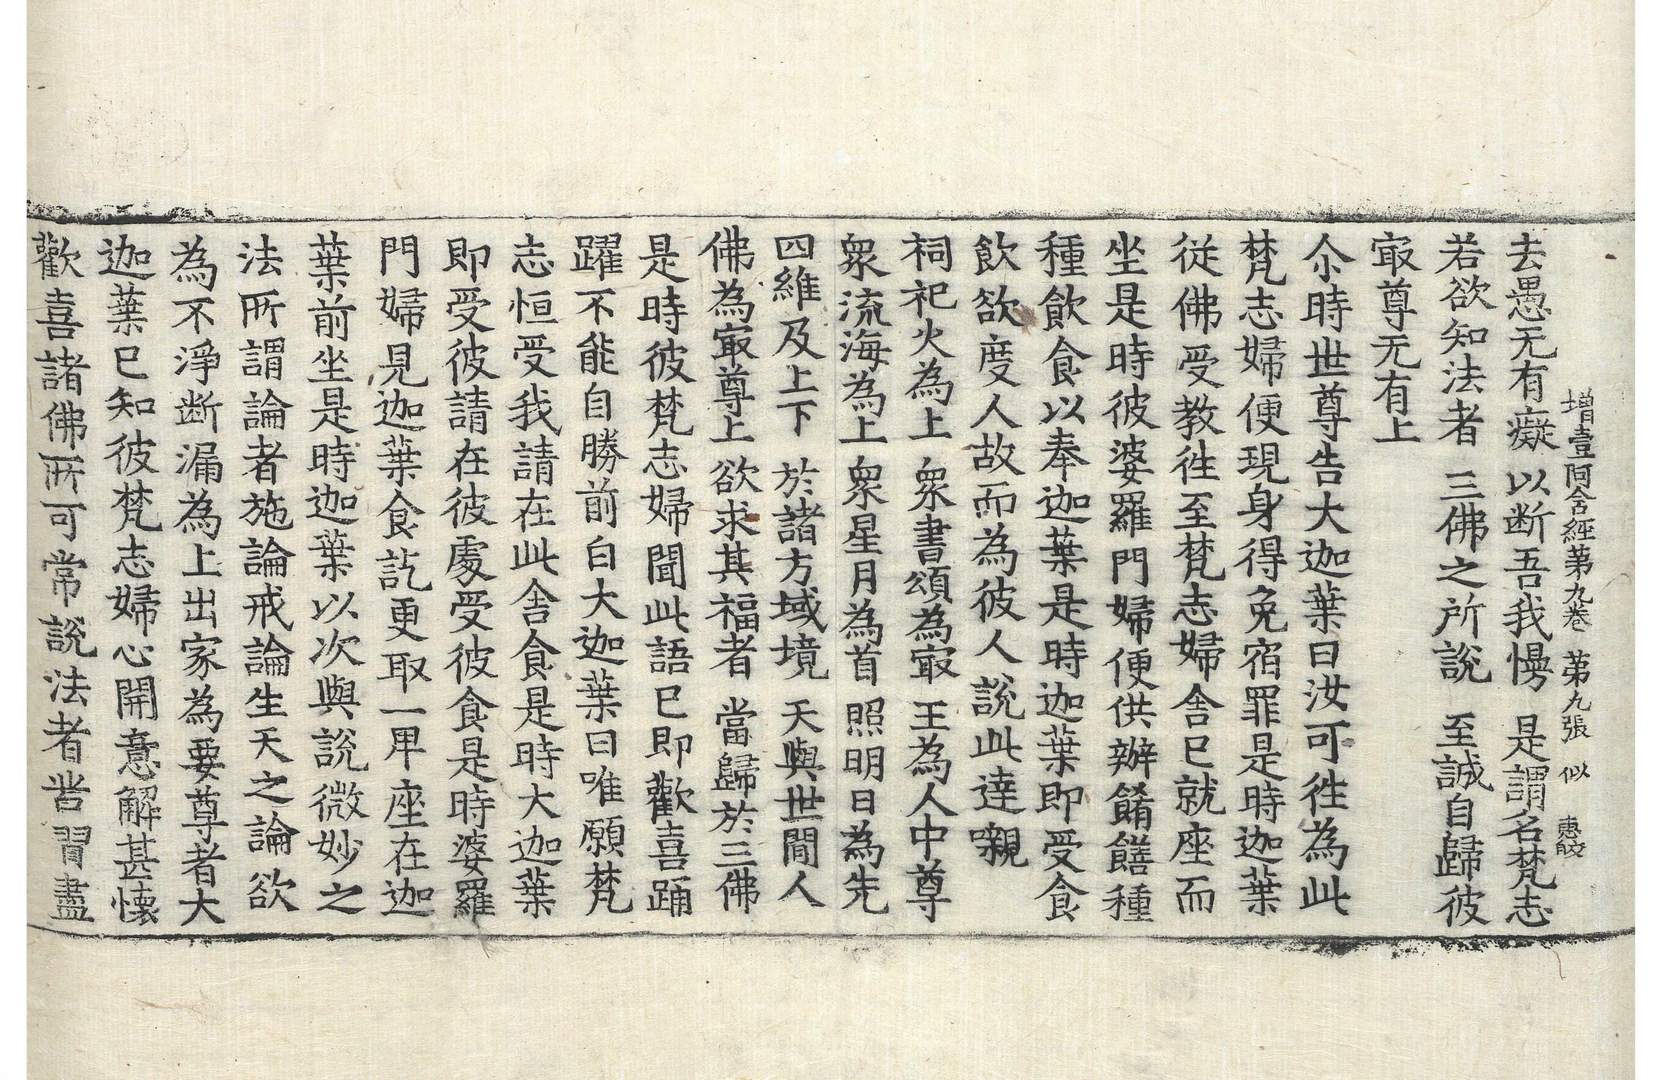 增壹阿含經第九卷 第九張 似
去愚无有癡 以断吾我慢 是謂名梵志
若欲知法者 三佛之所說 至誠自歸彼
㝡尊无有上
尒時世尊告大迦葉曰汝可往為此
梵志婦便現身得免宿罪是時迦葉
從佛受教往至梵志婦舍已就座而
坐是時彼婆羅門婦便供辦餚饍種
種飲食以奉迦葉是時迦葉即受食
飲欲度人故而為彼人說此達嚫
祠祀火為上 衆書頌為㝡 王為人中尊
衆流海為上 衆星月為首 照明日為先
四維及上下 於諸方域境 天與世間人
佛為㝡尊上 欲求其福者 當歸於三佛
是時彼梵志婦聞此語已即歡喜踊
躍不能自勝前白大迦葉曰唯願梵
志恒受我請在此舍食是時大迦葉
即受彼請在彼處受彼食是時婆羅
門婦見迦葉食訖更取一卑座在迦
葉前坐是時迦葉以次與說微妙之
法所謂論者施論戒論生天之論欲
為不淨断漏為上出家為要尊者大
迦葉已知彼梵志婦心開意解甚懐
歡喜諸佛所可常說法者苦習盡